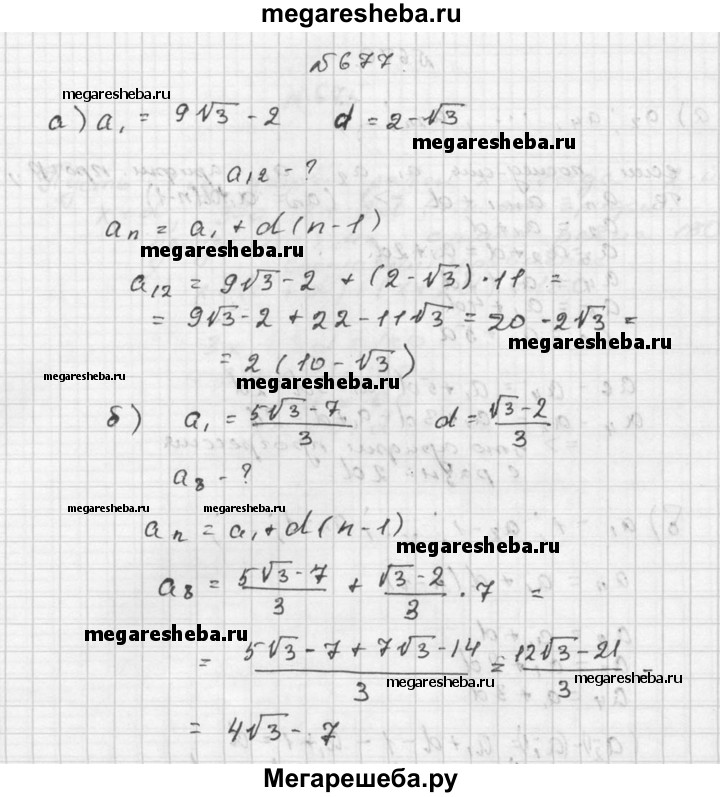 megaresheba.ru
№677.
megaresheba.ru
а) a₁ = 9√3 - 2 d = 2 - √3
megaresheba.ru
a₁₂ - ?
aₙ = a₁ + d(n-1)
megaresheba.ru
a₁₂ = 9√3 - 2 + (2 - √3) · 11 =
= 9√3 - 2 + 22 - 11√3 = 20 - 2√3 =
megaresheba.ru
= 2(10 - √3)
megaresheba.ru megaresheba.ru
б) a₁ = (5√3 - 7)/3 d = (√3 - 2)/3
a₈ - ?
megaresheba.ru megaresheba.ru
aₙ = a₁ + d(n-1)
megaresheba.ru
a₈ = (5√3 - 7)/3 + (√3 - 2)/3 · 7 =
megaresheba.ru
= (5√3 - 7 + 7√3 - 14)/3 = (12√3 - 21)/3 =
megaresheba.ru megaresheba.ru
= 4√3 - 7
Мегарешеба.ру